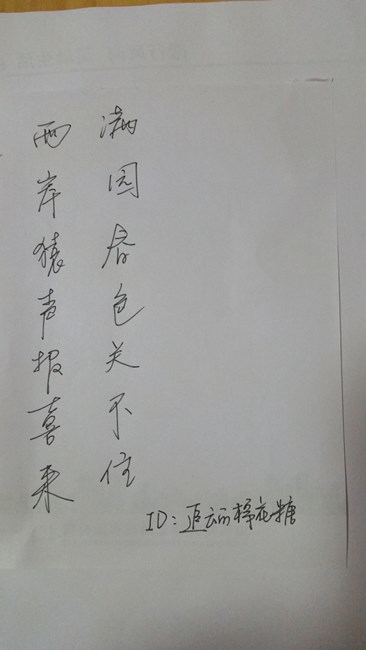 满园春色关不住
两岸猿声报喜来
ID：追云的棉花糖